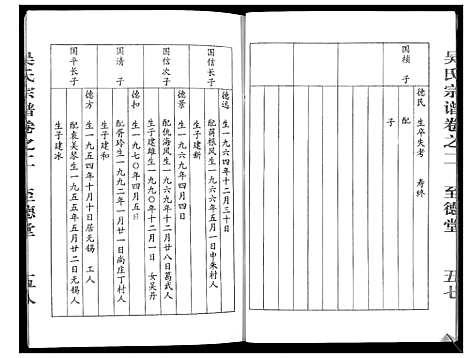 吴氏宗谱卷之二 至德堂 五七
国桢子
德民 生卒失考 寿终
配
子
国信长子
德远 生一九六四年十二月三十日
配蒋根凤生一九六六年五月一日中朱村人
生子建新
国信次子
德景 生一九六九年四月四日
配仇海凤生一九六六年十二月廿八日葛武人
生子建雄生一九九〇年十二月一日 女吴丹
国清子
德和 生一九七〇年四月五日
配胥玲生一九九二年一月廿一日尚庄丁村人
生子建和
国平长子
德方 生一九五四年十月十日居无锡 工人
配袁美琴生一九五五年五月廿二日无锡人
生子建冰
吴氏宗谱卷之二 至德堂 五八